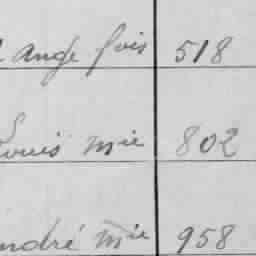 Ange fois 518
Louis mie 802
André mie 958